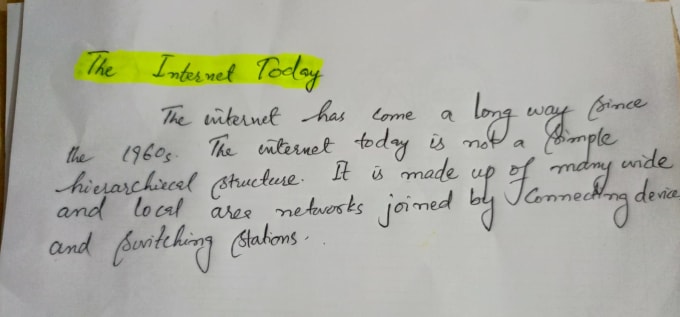 The Internet Today
The internet has come a long way since
the 1960s. The internet today is not a simple
hierarchiecal structure. It is made up of many wide
and local area networks joined by connecting device
and switching stations.